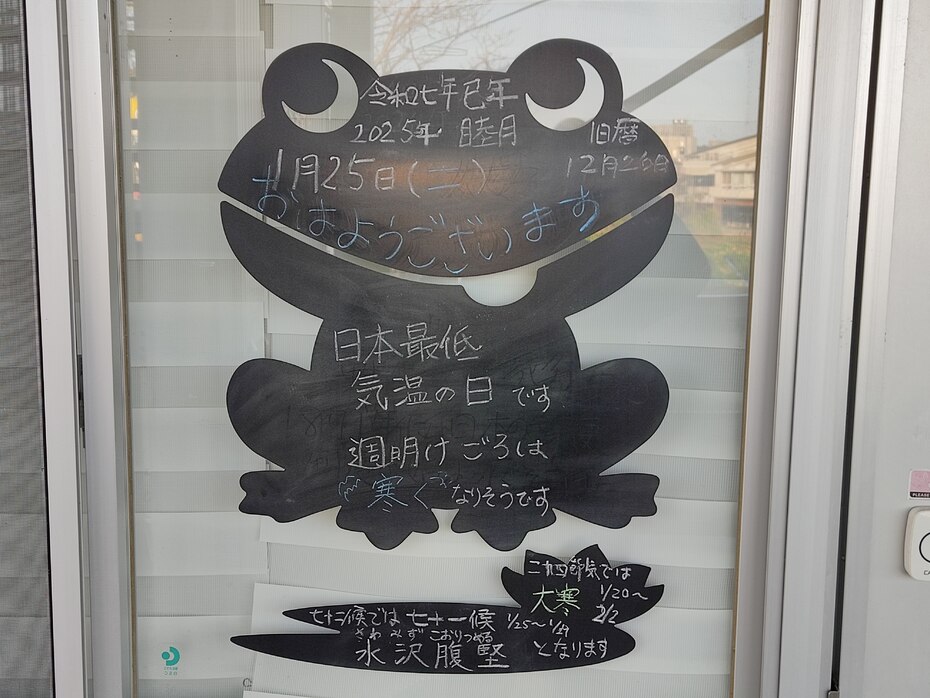 令和七年巳年
2025年 睦月
旧暦
12月26日
1月25日(土)
おはようございます
日本最低
気温の日です
週明けごろは
寒くなりそうです
二十四節気では
大寒 1/20～
2/2
七十二候では七十一候 1/25～1/29
さわみずこおりつめる
水沢腹堅 となります
PLEASE